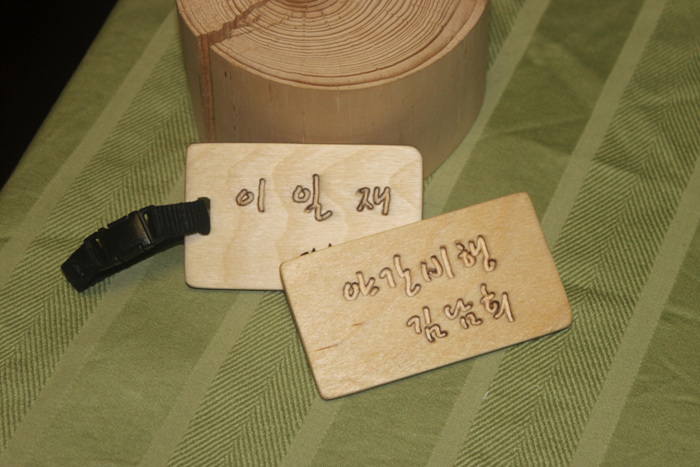 이일재
야간비행
김남희